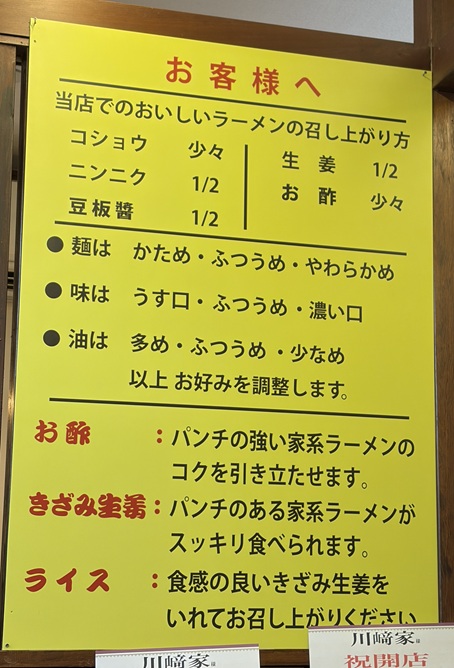 お客様へ
当店でのおいしいラーメンの召し上がり方
コショウ 少々
ニンニク 1/2
豆板醬 1/2
生姜 1/2
お酢 少々
●麺は かため・ふつうめ・やわらかめ
●味は うす口・ふつうめ・濃い口
●油は 多め・ふつうめ・少なめ
以上 お好みを調整します。
お酢 :パンチの強い家系ラーメンの
コクを引き立たせます。
きざみ生姜:パンチのある家系ラーメンが
スッキリ食べられます。
ライス :食感の良いきざみ生姜を
いれてお召し上がりください
川﨑家様
川﨑家様
祝開店